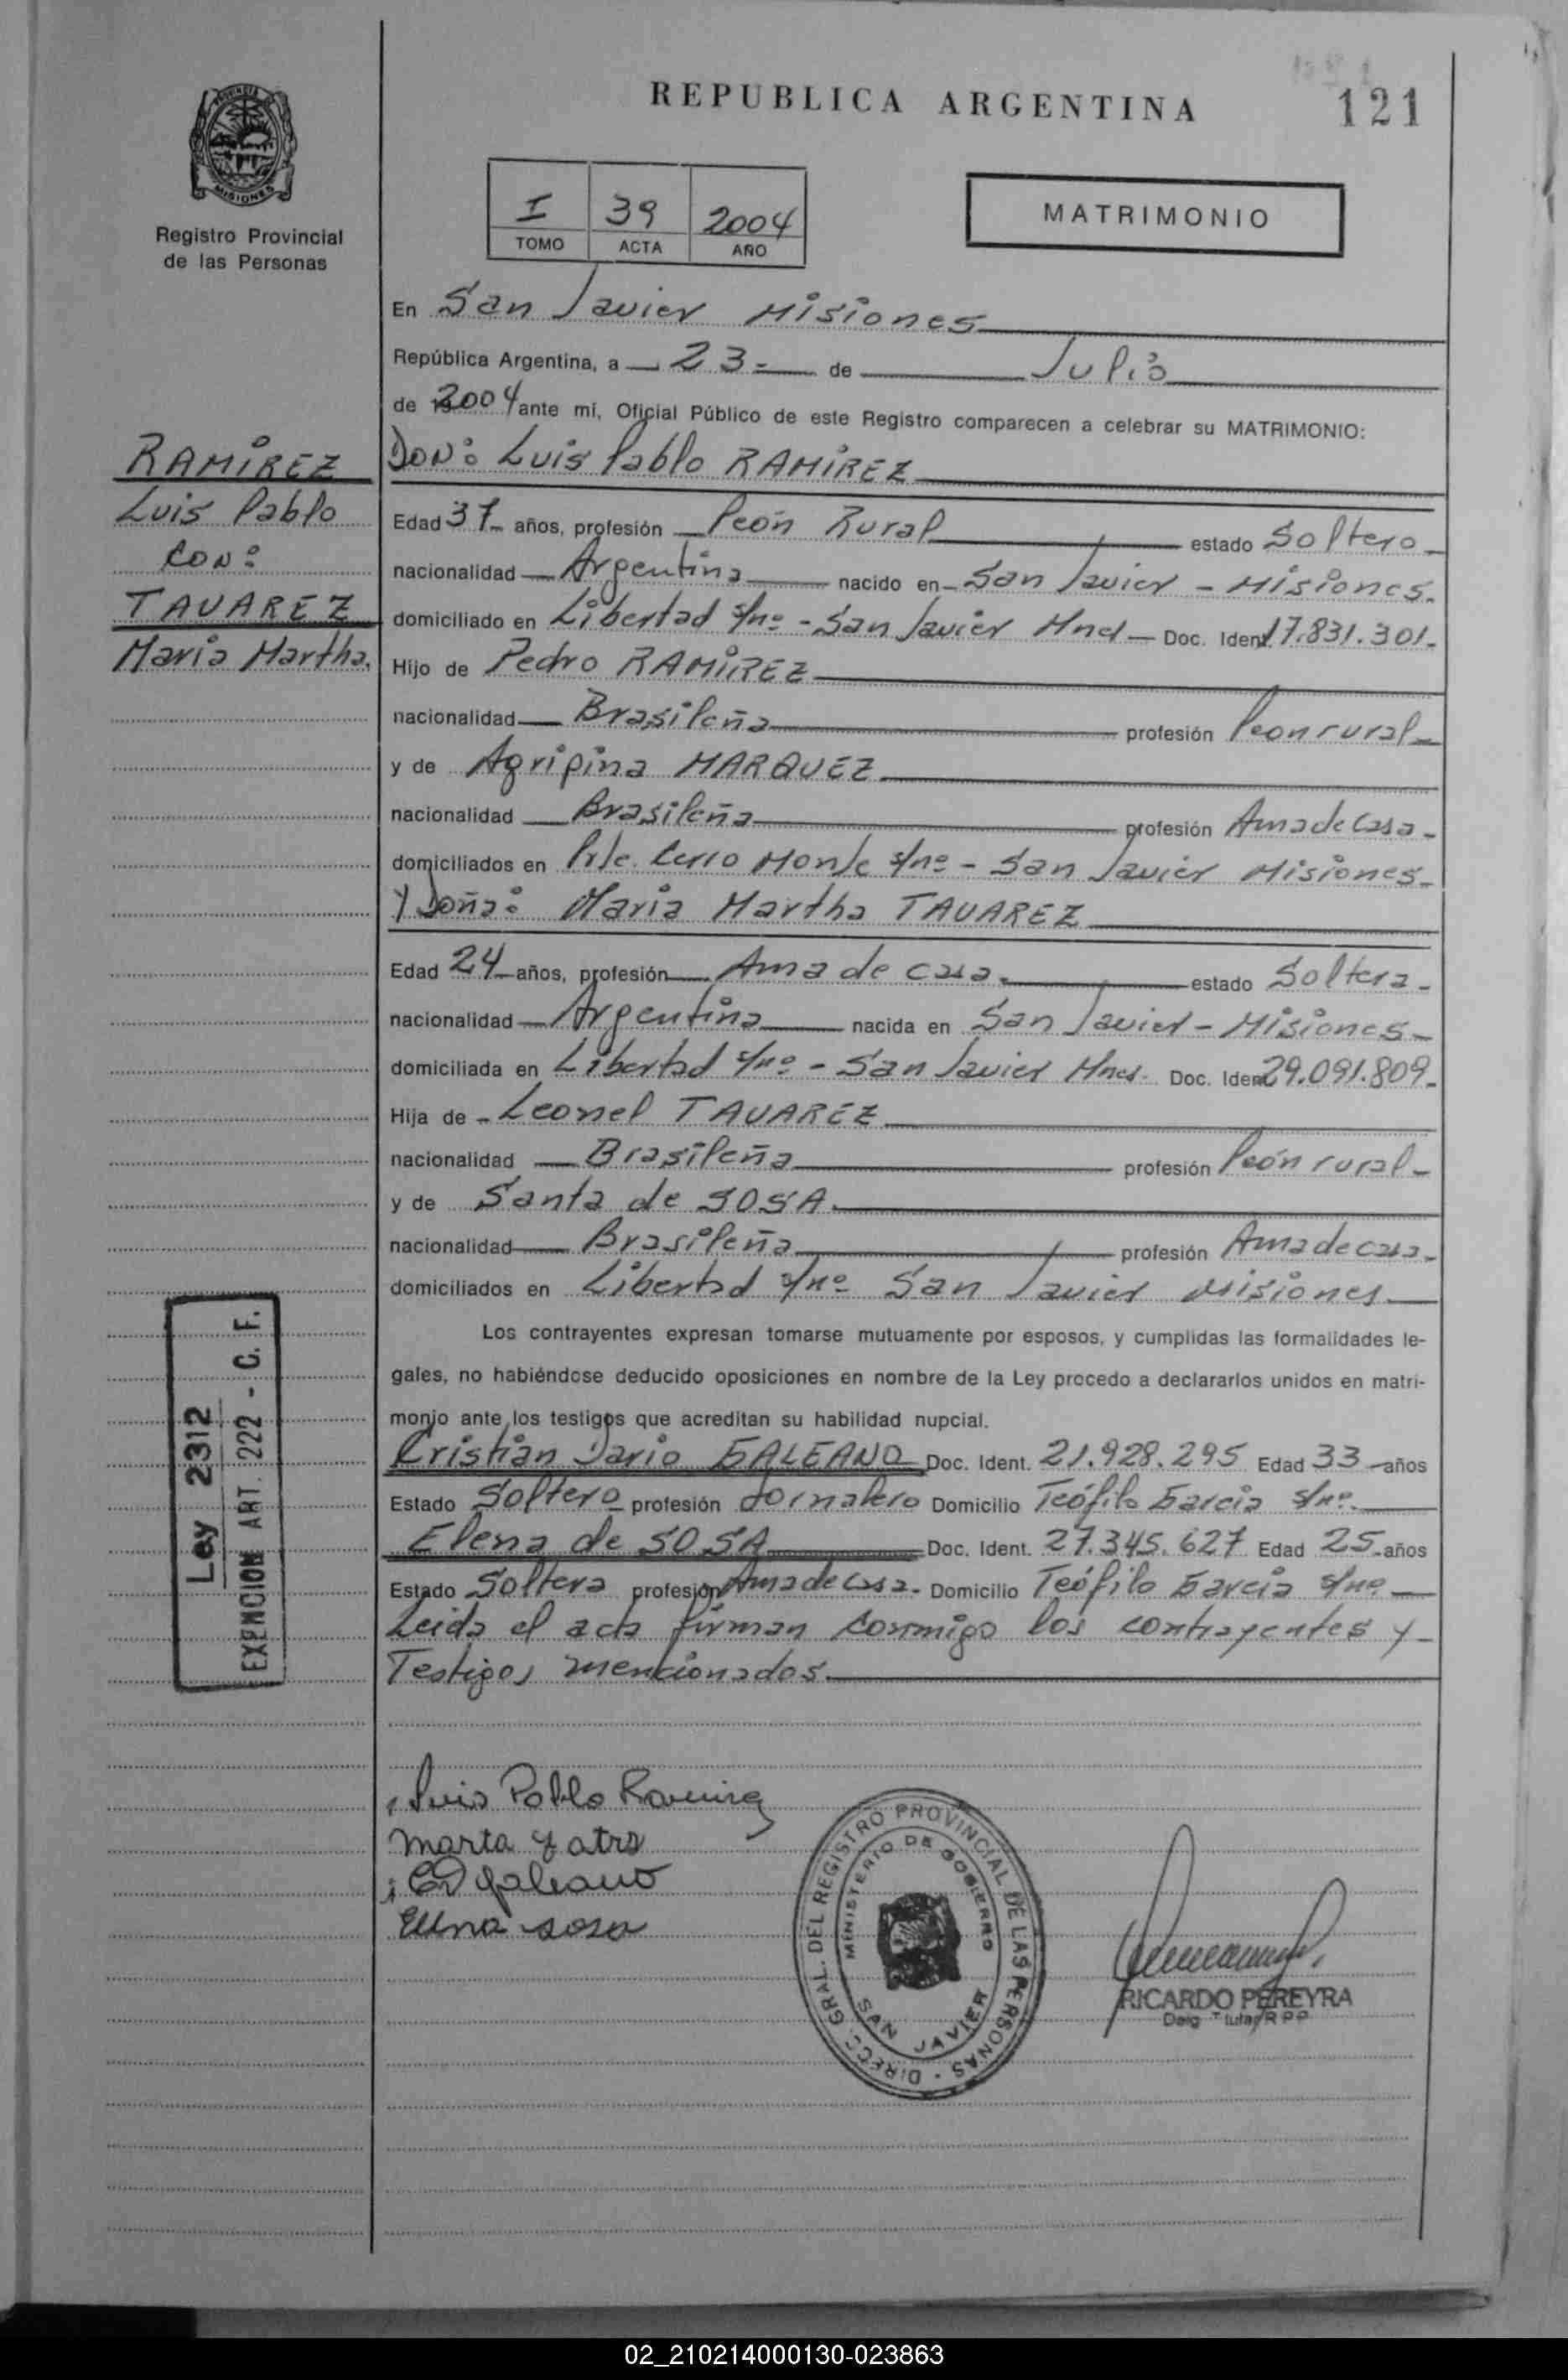 REPUBLICA ARGENTINA
121
PROVINCIA
MISIONES
Registro Provincial
de las Personas
I 39 2004
TOMO ACTA AÑO
MATRIMONIO
En San Javier Misiones
República Argentina, a 23 de Julio
de 2004 ante mí, Oficial Público de este Registro comparecen a celebrar su MATRIMONIO:
RAMÍREZ
Luis Pablo
CON:
TAVAREZ
María Martha.
Don: Luis Pablo RAMÍREZ
Edad 37 años, profesión Peón Rural estado Soltero
nacionalidad Argentina nacido en San Javier - Misiones.
domiciliado en Libertad s/nº - San Javier Mnes Doc. Ident. 17.831.301.
Hijo de Pedro RAMÍREZ
nacionalidad Brasileña profesión Peon rural
y de Agripina MARQUEZ
nacionalidad Brasileña profesión Ama de casa
domiciliados en Cerro Monje s/nº - San Javier Misiones
Y Doña: María Martha TAVAREZ
Edad 24 años, profesión Ama de casa. estado Soltera
nacionalidad Argentina nacida en San Javier - Misiones
domiciliada en Libertad s/nº - San Javier Mnes. Doc. Ident 29.091.809
Hija de Leonel TAVAREZ
nacionalidad Brasileña profesión Peón rural
y de Santa de SOSA
nacionalidad Brasileña profesión Ama de casa
domiciliados en Libertad s/nº San Javier Misiones
Los contrayentes expresan tomarse mutuamente por esposos, y cumplidas las formalidades le-
gales, no habiéndose deducido oposiciones en nombre de la Ley procedo a declararlos unidos en matri-
monio ante los testigos que acreditan su habilidad nupcial.
Cristian Dario GALEANO Doc. Ident. 21.928.295 Edad 33 años
Estado Soltero profesión Jornalero Domicilio Teófilo García s/nº
Elena de SOSA Doc. Ident. 27.345.627 Edad 25 años
Estado Soltera profesión Ama de casa Domicilio Teófilo García s/nº
Leida el acta firman conmigo los contrayentes y
Testigos mencionados.
Ley 2312
EXENCION ART. 222 - C. F.
Luis Pablo Ramirez
Marta
CD galeano
Elena sosa
DIRECC. GRAL. DEL REGISTRO PROVINCIAL DE LAS PERSONAS
MINISTERIO DE GOBIERNO
SAN JAVIER
RICARDO PEREYRA
02_210214000130-023863